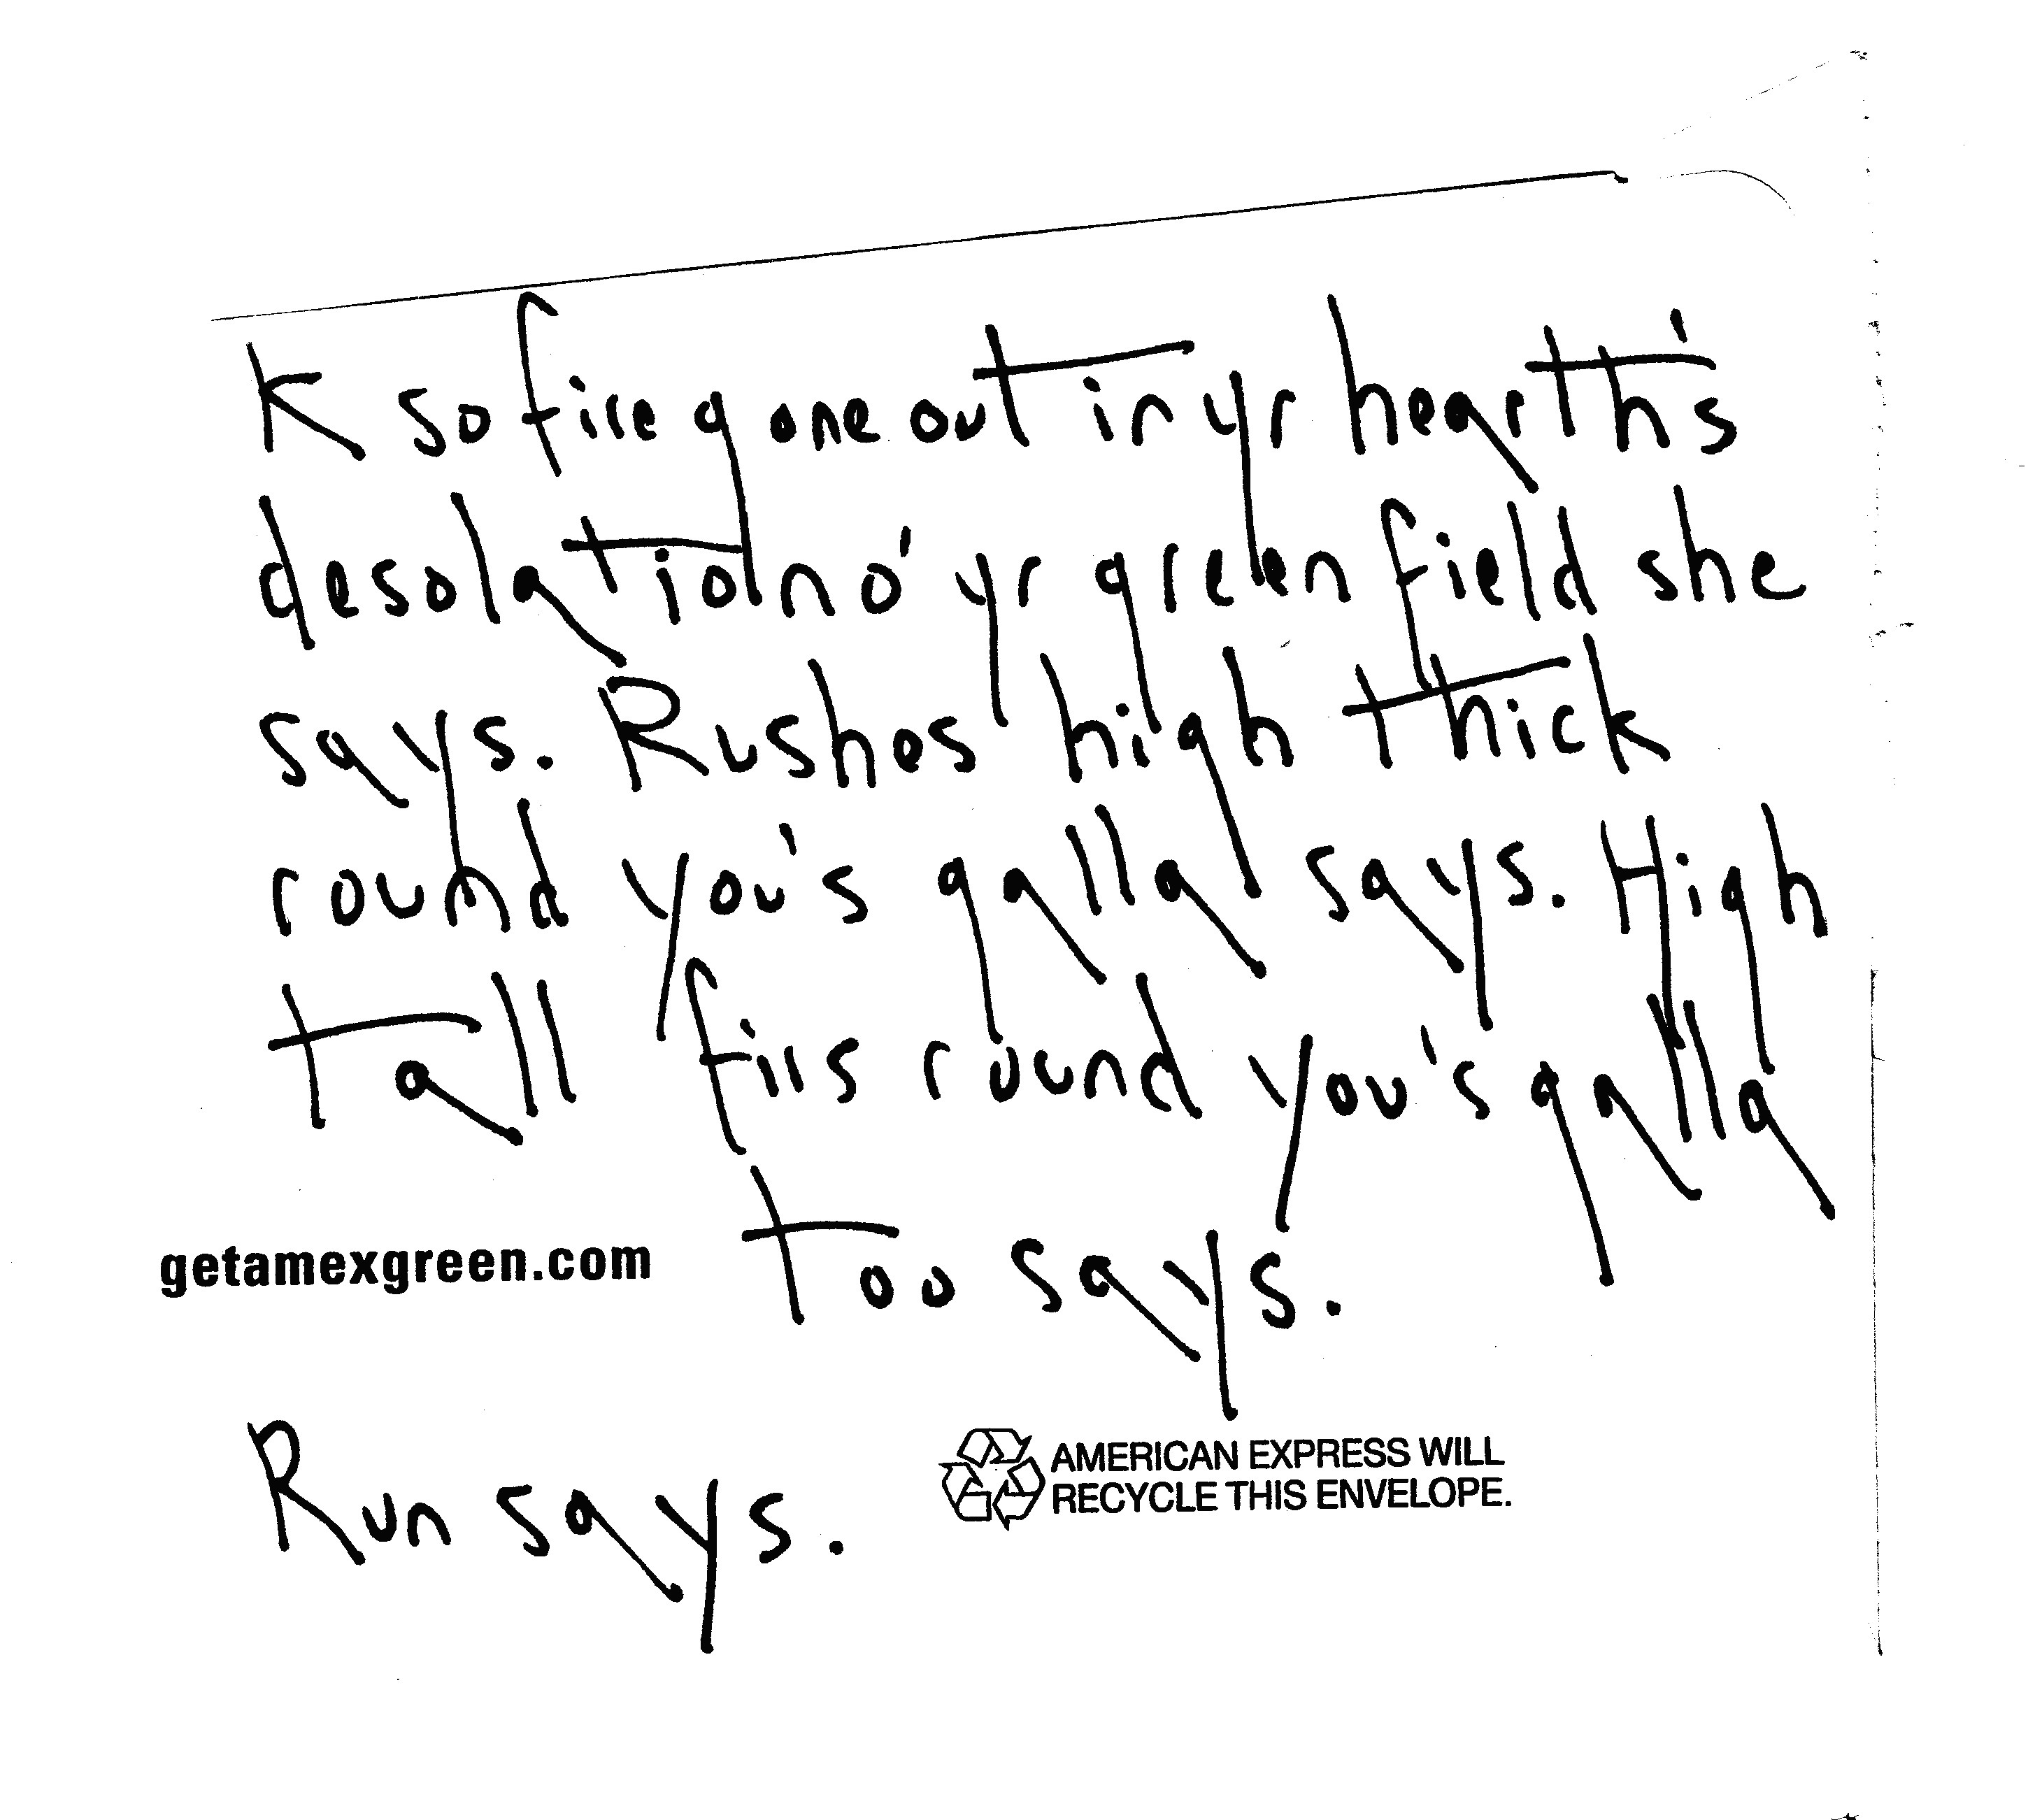 K so fire gone out in yr hearth's
desolation o' yr green field she
says. Rushes high thick
round you's galla says. High
tall firs round you's galla
getamexgreen.com too says.
Run says.
AMERICAN EXPRESS WILL
RECYCLE THIS ENVELOPE.